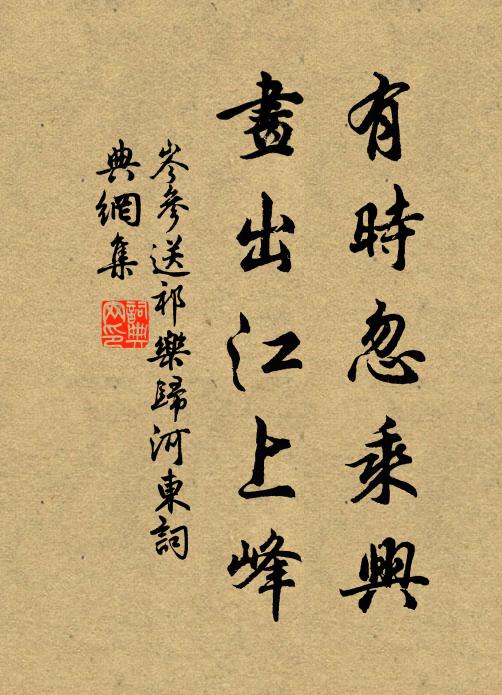 有時忽乘興
畫出江上峰
岑參送祁樂歸河東詞
典網集
詞典网印